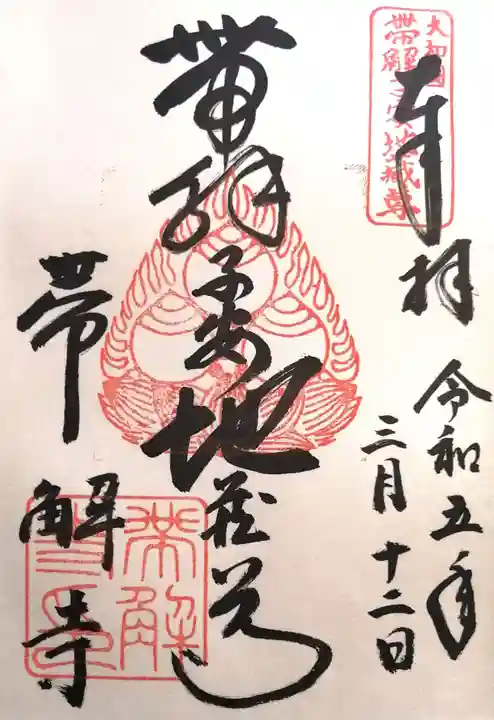 大和國
帯解子安地蔵尊
奉拝
令和五年
三月十二日
帯解子安地蔵尊
帯解寺
帯解寺印